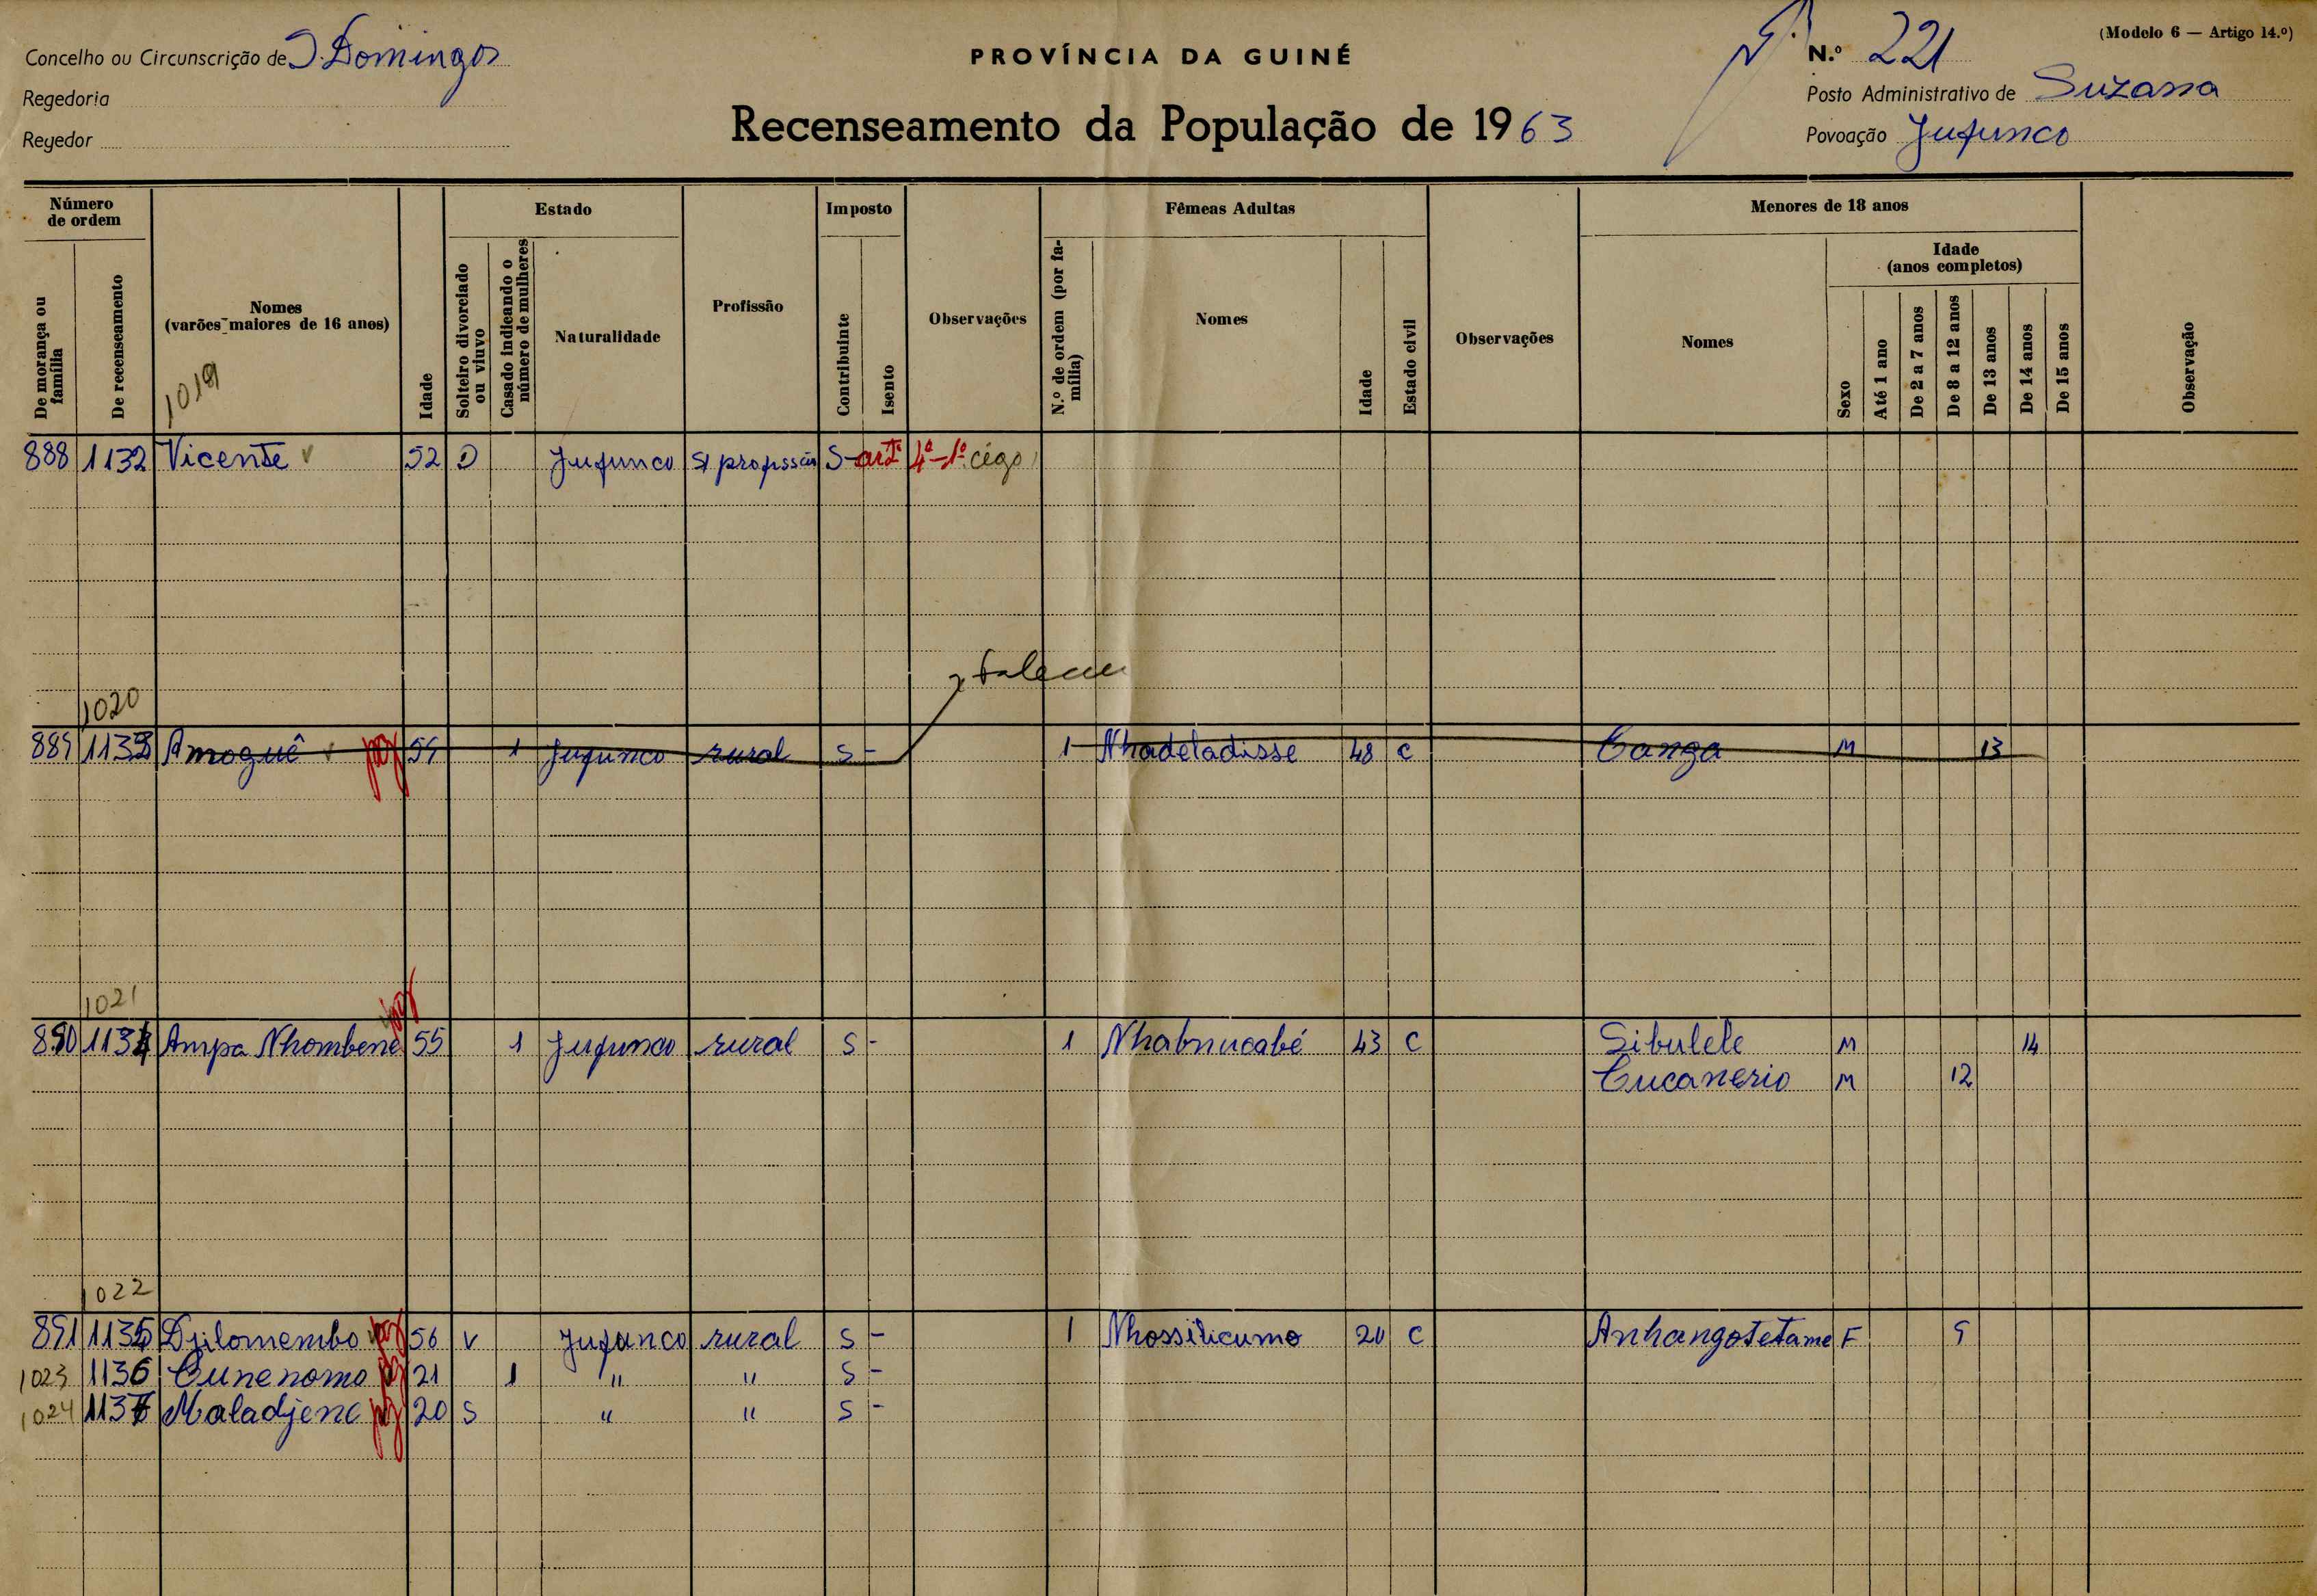 (Modelo 6 — Artigo 14.º)
Concelho ou Circunscrição de S. Domingos PROVÍNCIA DA GUINÉ N.º 221
Regedoria Posto Administrativo de Suzana
Regedor Recenseamento da População de 1963 Povoação Jufunco
Número de ordem
De morança ou família
De recenseamento
Nomes
(varões maiores de 16 anos)
1019
Idade
Estado
Solteiro divorciado ou viuvo
Casado indicando o número de mulheres
Naturalidade
Profissão
Imposto
Contribuinte
Isento
Observações
Fêmeas Adultas
N.º de ordem (por família)
Nomes
Idade
Estado civil
Observações
Menores de 18 anos
Nomes
Sexo
Idade
(anos completos)
Até 1 ano
De 2 a 7 anos
De 8 a 12 anos
De 13 anos
De 14 anos
De 15 anos
Observação
888 1132 Vicente 52 D Jufunco S/ profissão S - artº 4º-1º cégo
faleceu
1020
889 1133 Amoguê pg 54 1 Jufunco rural S - 1 Nhadeladisse 48 C Canga M 13
1021
890 1134 Ampa Nhombene pg 55 1 Jufunco rural S - 1 Nhabnucabé 43 C Sibulele M 14
Cucanerio M 12
1022
891 1135 Djilomembo pg 56 V Jufunco rural S - 1 Nhossilicumo 20 C Anhangotetame F 9
1023 1136 Cunenomo pg 21 1 " " S -
1024 1137 Maladjene pg 20 S " " S -